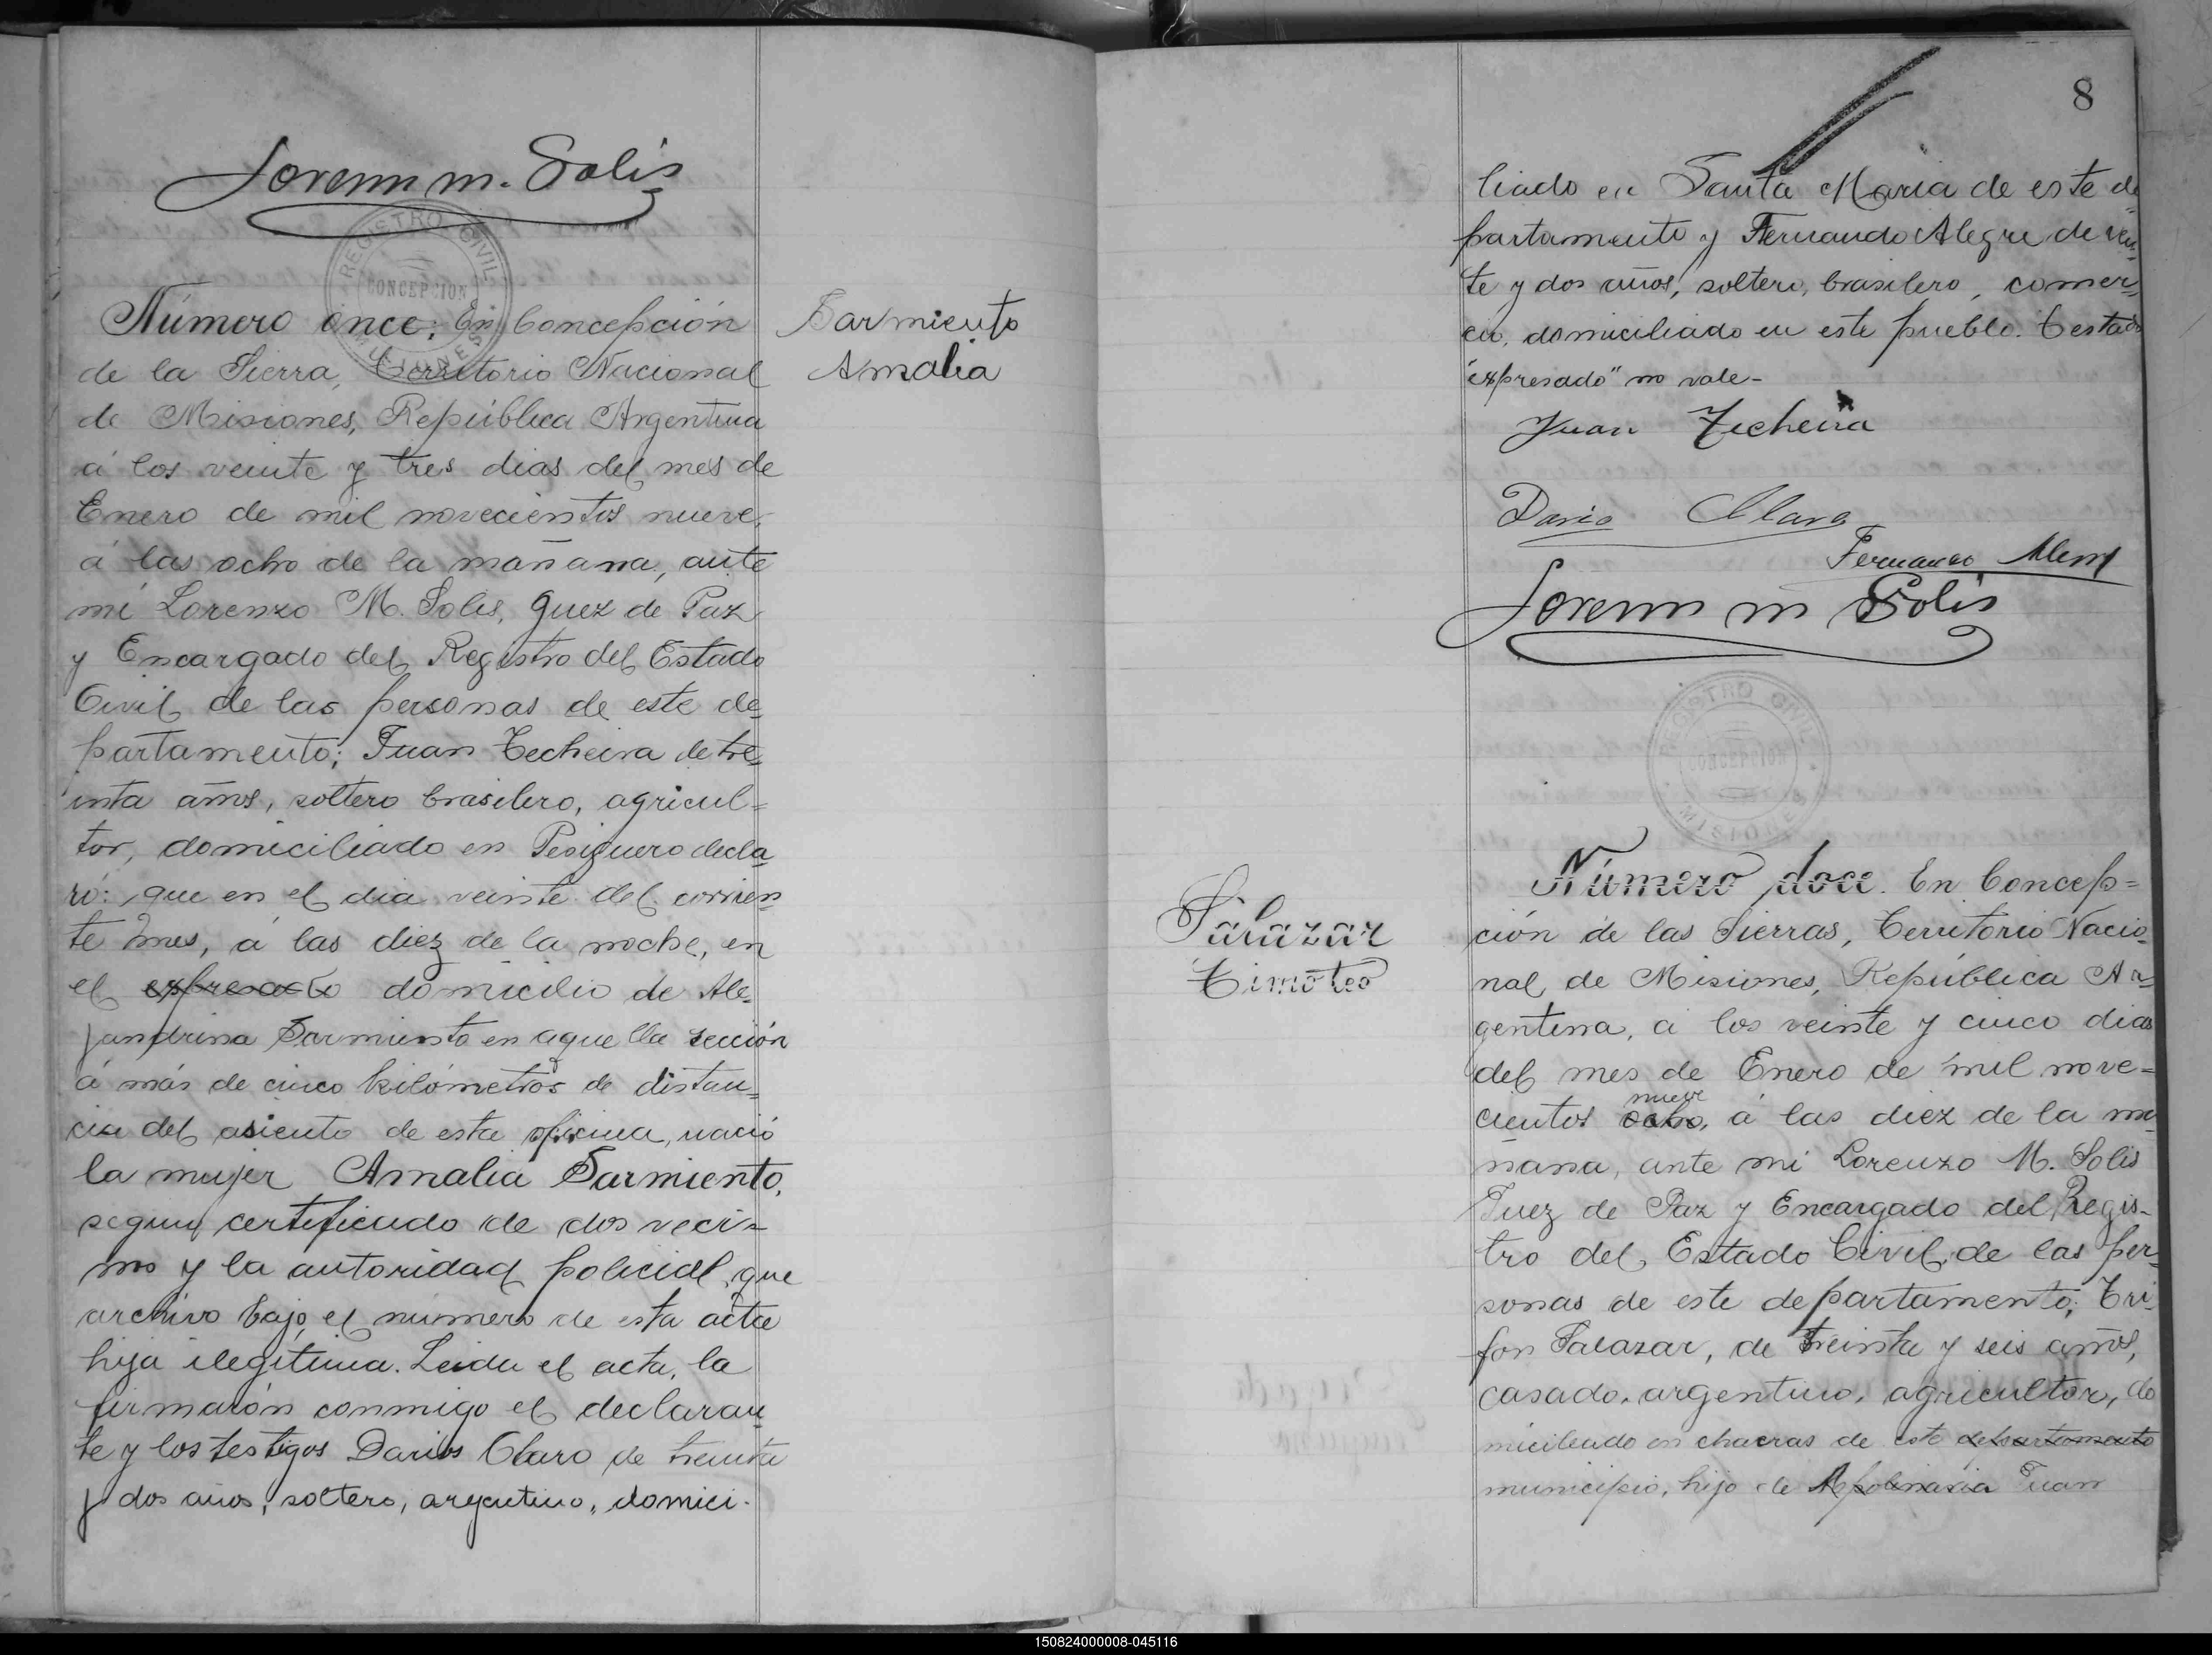 Lorenzo M. Solis
REGISTRO CIVIL
CONCEPCION
MISIONES
Número once. En Concepción
de la Sierra, Territorio Nacional
de Misiones, República Argentina
á los veinte y tres dias del mes de
Enero de mil novecientos nueve,
á las ocho de la mañana, ante
mí Lorenzo M. Solis, Juez de Paz
y Encargado del Registro del Estado
Civil de las personas de este de-
partamento; Juan Techeira de tre-
inta años, soltero brasilero, agricul=
tor, domiciliado en Pesiguero decla-
ró: que en el dia veinte del corrien-
te mes, á las diez de la noche, en
el expresado domicilio de Ale-
jandrina Sarmiento en aquella sección
á más de cinco kilómetros de distan-
cia del asiento de esta oficina, nació
la mujer Amalia Sarmiento,
segun certificado de dos veci-
nos y la autoridad policial que
archivo bajo el número de esta acta
hija ilegítima. Leida el acta, la
firmaron conmigo el declaran-
te y los testigos Dario Claro de treinta
y dos años, soltero, argentino, domici-
Sarmiento
Amalia
8
liado en Santa Maria de este de-
partamento y Fernando Alegre de vein-
te y dos años, soltero, brasilero, comer-
cio, domiciliado en este pueblo. Testado
"expresado" no vale-
Juan Techeira
Dario Claro
Fernando
Lorenzo M Solis
REGISTRO CIVIL
CONCEPCION
MISIONES
Salazar
Timoteo
Número doce. En Concep=
ción de las Sierras, Territorio Nacio-
nal de Misiones, República Ar-
gentina, á los veinte y cinco dias
del mes de Enero de mil nove=
nueve
cientos ocho, á las diez de la ma-
ñana, ante mí Lorenzo M. Solis
Juez de Paz y Encargado del Regis-
tro del Estado Civil de las per-
sonas de este departamento; Tri-
fon Salazar, de treinta y seis años,
casado, argentino, agricultor, do
miciliado en chacras de este departamento
municipio, hijo de Apolinaria Juan